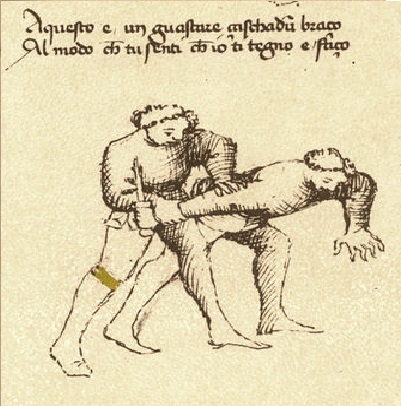 Aquesto e un guastare cischadū braço
Al modo ch̄ tu senti ch̄ io ti tegno e stiço